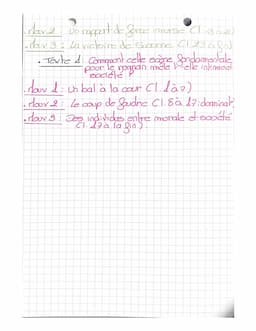 .Mouv 2 : Un rapport de force inversé (l.
.Mouv 3 : La victoire de Suzanne (l.
. Texte 1 : Comment cette scène fondamentale
pour le roman mêle t-elle intime et
société ?
.Mouv 1 : Un bal à la cour (l.1 à 7)
.Mouv 2 : Le coup de foudre (l.8 à 17:
.Mouv 3 : Des individus entre morale et société
(l.17 à la fin).